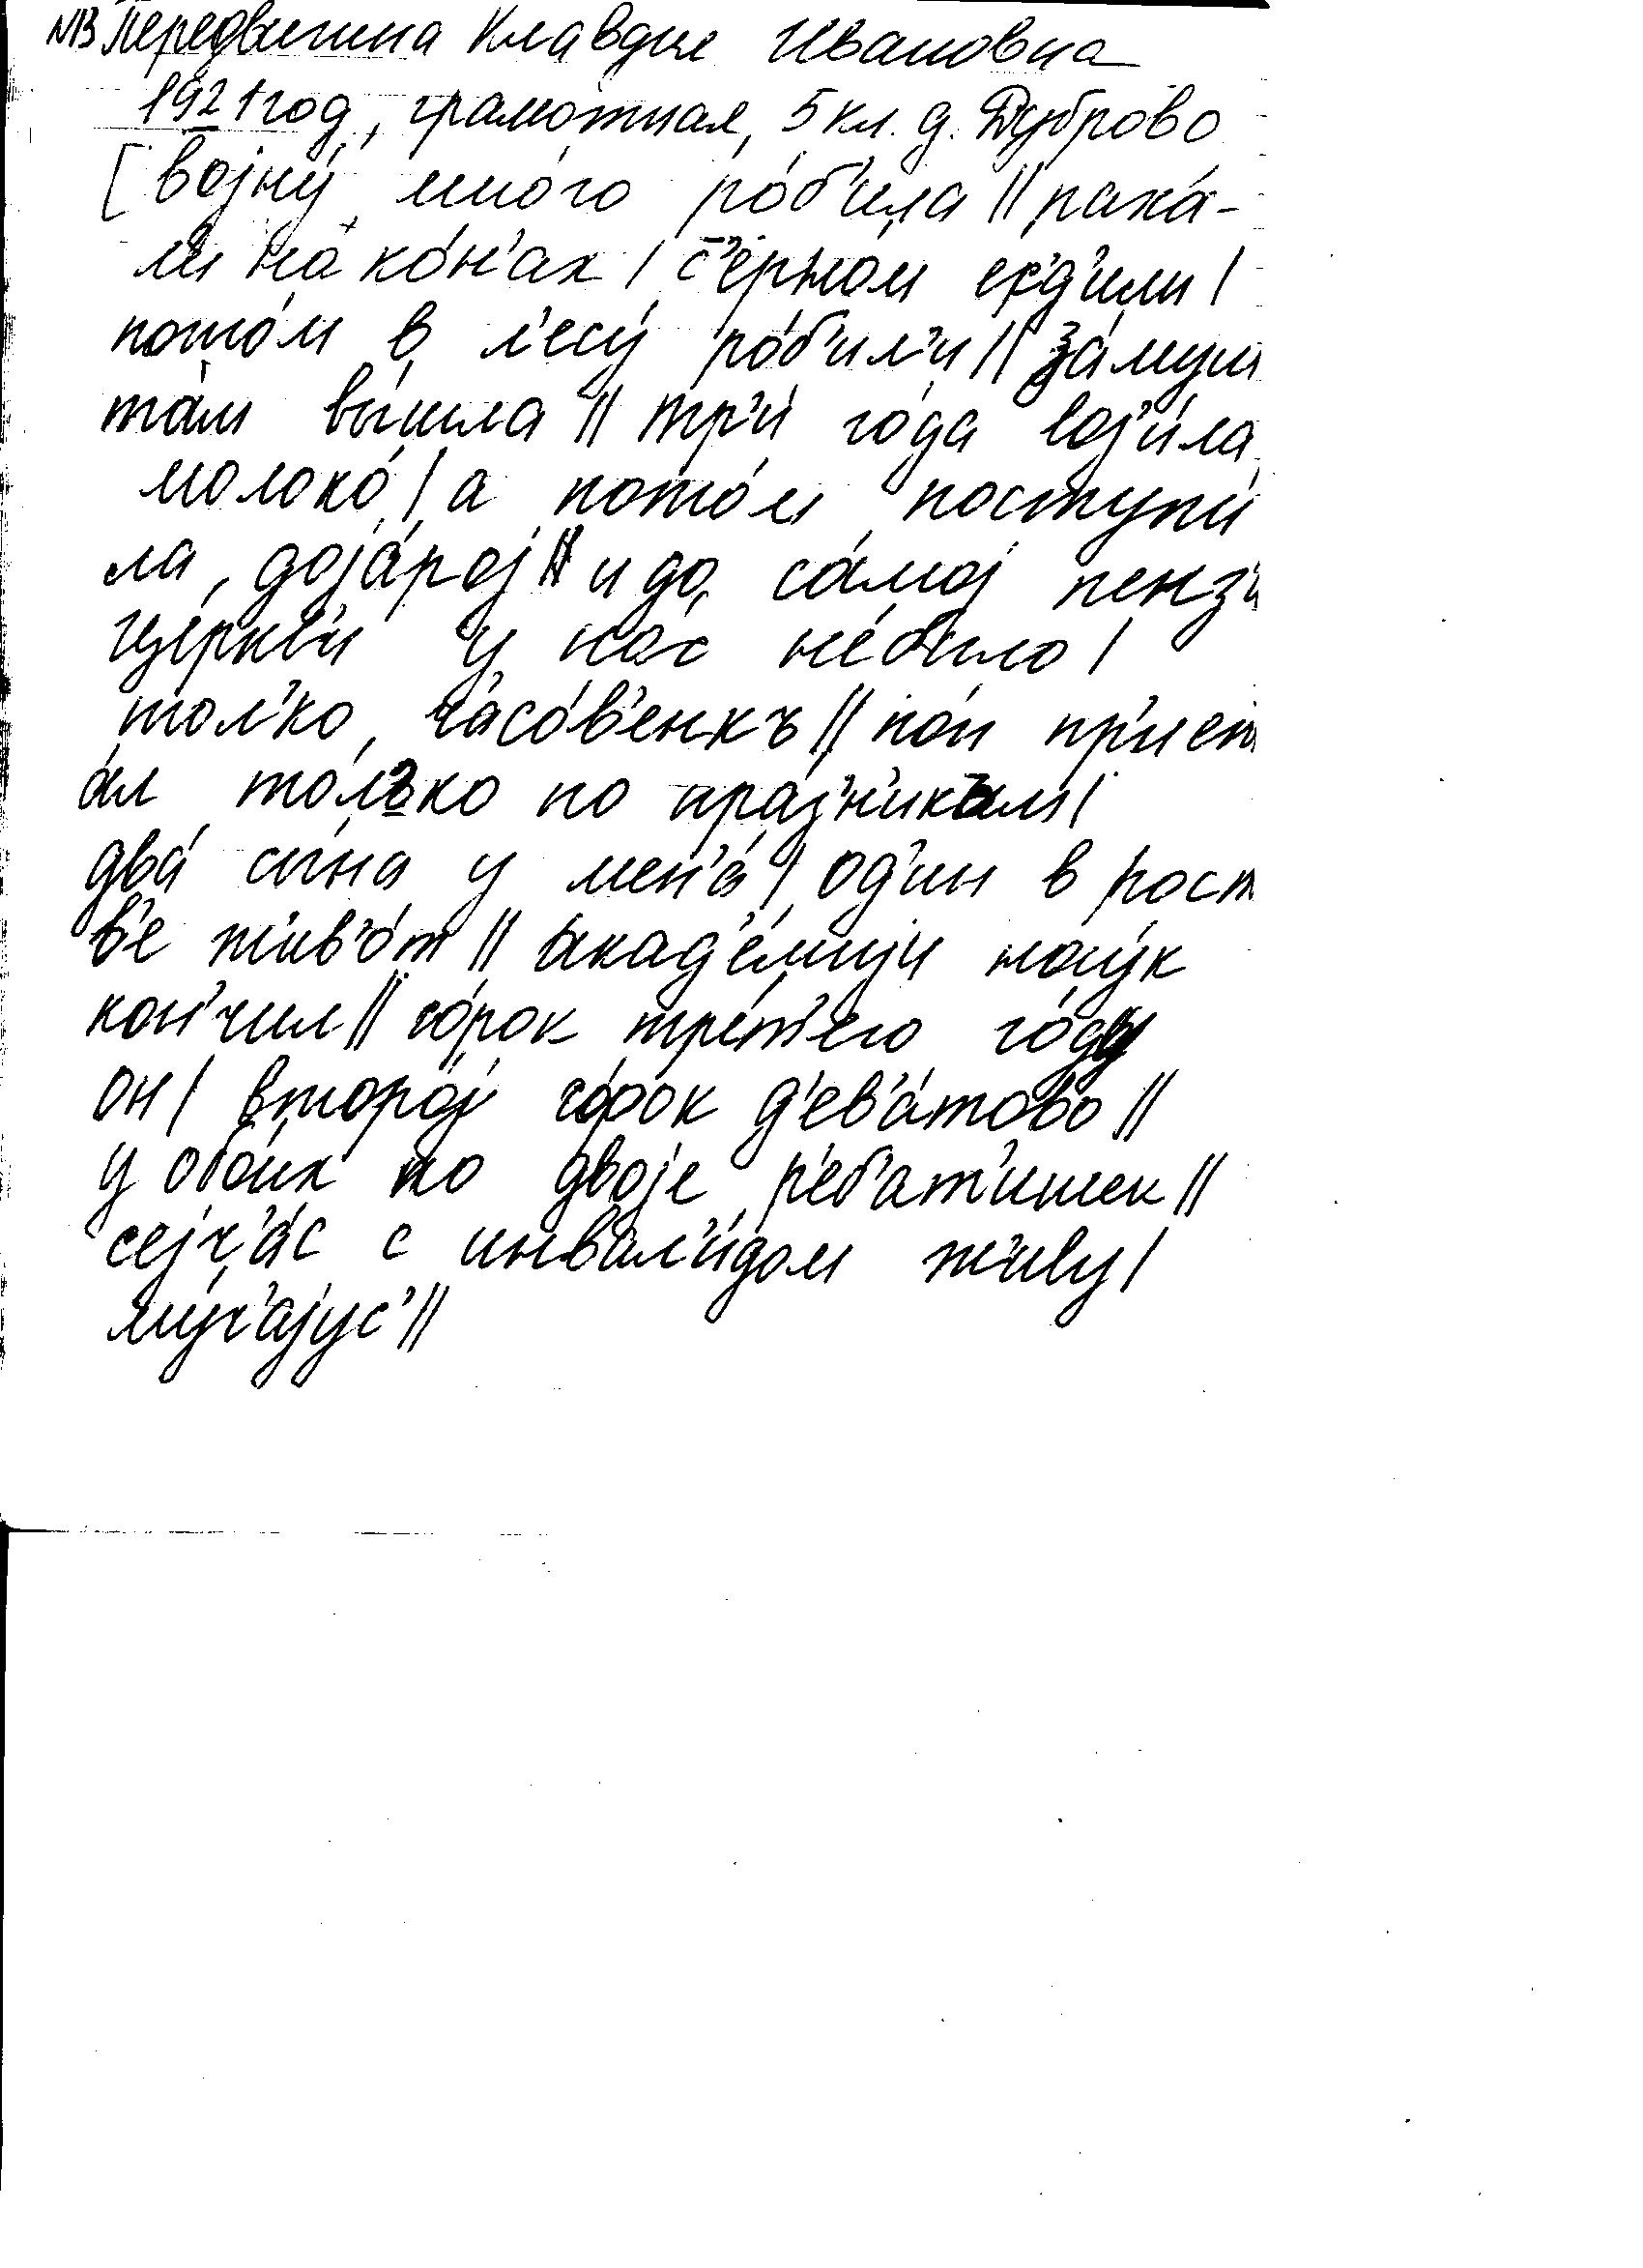 №13 Передвигина Клавдия Ивановна
1921 год, грамотная, 5 кл. д. Дуброво
[војну́ мно́го ро́б'ила || паха́-
ли на ко́н'ах / с'ерпо́м
пото́м в л'есу́ ро́б'ил'и || за́муш
та́м вы́шла || тр'и́ го́да вој'и́ла
молоко́ / а пото́м поступи́
ла доја́рој || и до са́мој пенз'и
це́ркв'и у нас не́было /
тол'ко часо́в'енкъ || по́п пр'иет
а́л то́л'ко по пра́з'н'икъм /
два́ сы́на у мен'а́ / од'ин в рост
в'е жив'о́т || акад'е́мији нау́к
кон'чил || со́рок тре́т'его го́ду
он / второ́ј со́рок д'ев'а́тово ||
у обо́их по двоје р'еб'ат'ишек ||
сејч'а́с с инвал'и́дом живу /
му́ч'ајус' ||